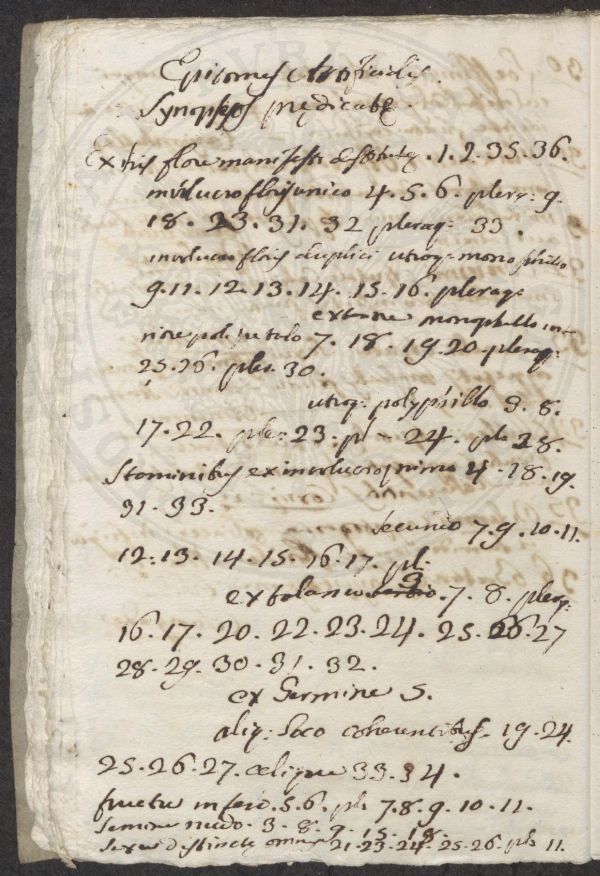 Epitomes Artificialis
Synopseos predicate.
Ex his flore manifesto destitute. 1. 2. 35. 36.
involucro floris unico 4. 5. 6. pleræq: 9.
18. 23. 31. 32 pleraq: 33.
involucro floris duplici utroq: monophillo
9. 11. 12. 13. 14. 15. 16. pleraq:
exteriore monophillo in-
riore polipetalo 7. 18. 19. 20 pleraq:
25. 26. ples. 30.
utroq: polyphillo 3. 8.
17. 22. ples: 23. pl 24. pls 28.
Staminibus ex involucro primo 4. 18. 19.
31. 33.
secundo 7. 9. 10. 11.
12. 13. 14. 15. 16. 17. pl.
ex talamo 3 7. 8. pleraq:
16. 17. 20. 22. 23. 24. 25. 26. 27
28. 29. 30. 31. 32.
ex Germine 5.
aliq: loco coherentibus. 19. 24.
25. 26. 27. 33. 34.
fructu infero. 5. 6. pls 7. 8. 9. 10. 11.
Semine nudo. 3. 8. 9. 15. 18.
Sexu distincte omnes 21. 23. 24. 25. 26. pls 11.